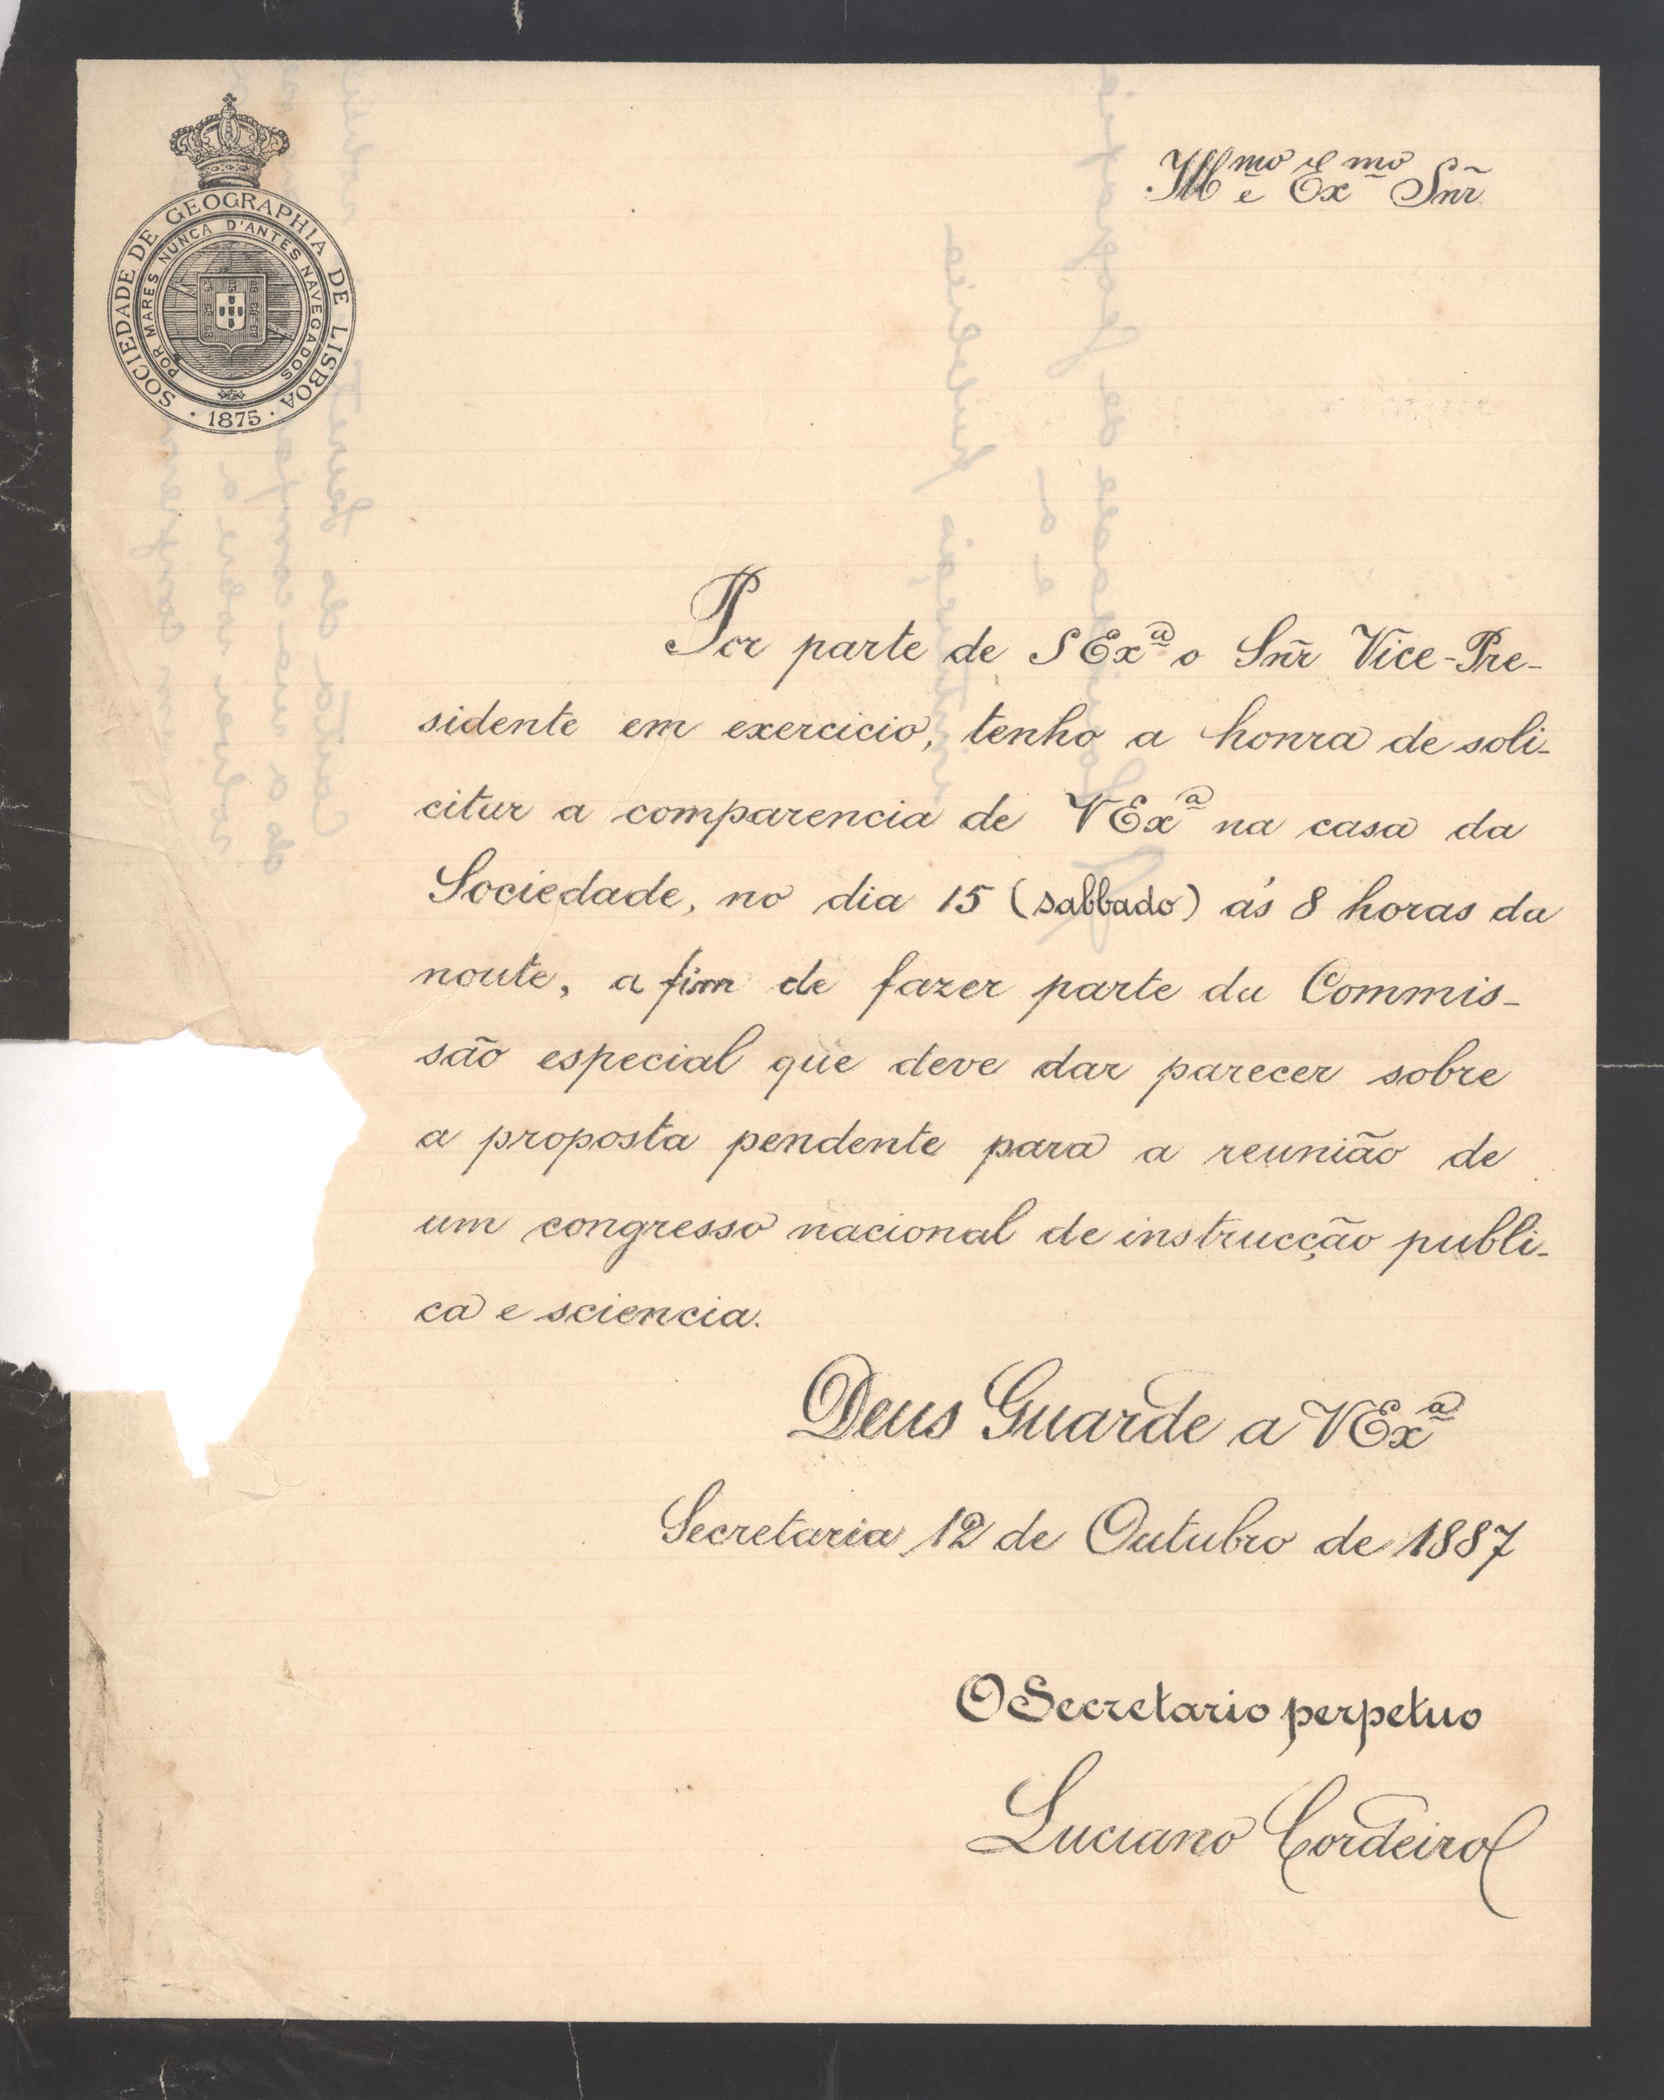 SOCIEDADE DE GEOGRAPHIA DE LISBOA
POR MARES NUNCA D'ANTES NAVEGADOS
· 1875 ·
Ill.mo e Ex.mo Snr
Por parte de S Exª o Snr Vice-Pre-
sidente em exercicio, tenho a honra de soli-
citar a comparencia de V Exª na casa da
Sociedade, no dia 15 (sabbado) ás 8 horas da
noute, a fim de fazer parte da Commis-
são especial que deve dar parecer sobre
a proposta pendente para a reunião de
um congresso nacional de instrucção publi-
ca e sciencia.
Deus Guarde a V Exª
Secretaria 12 de Outubro de 1887
O Secretario perpetuo
Luciano Cordeiro